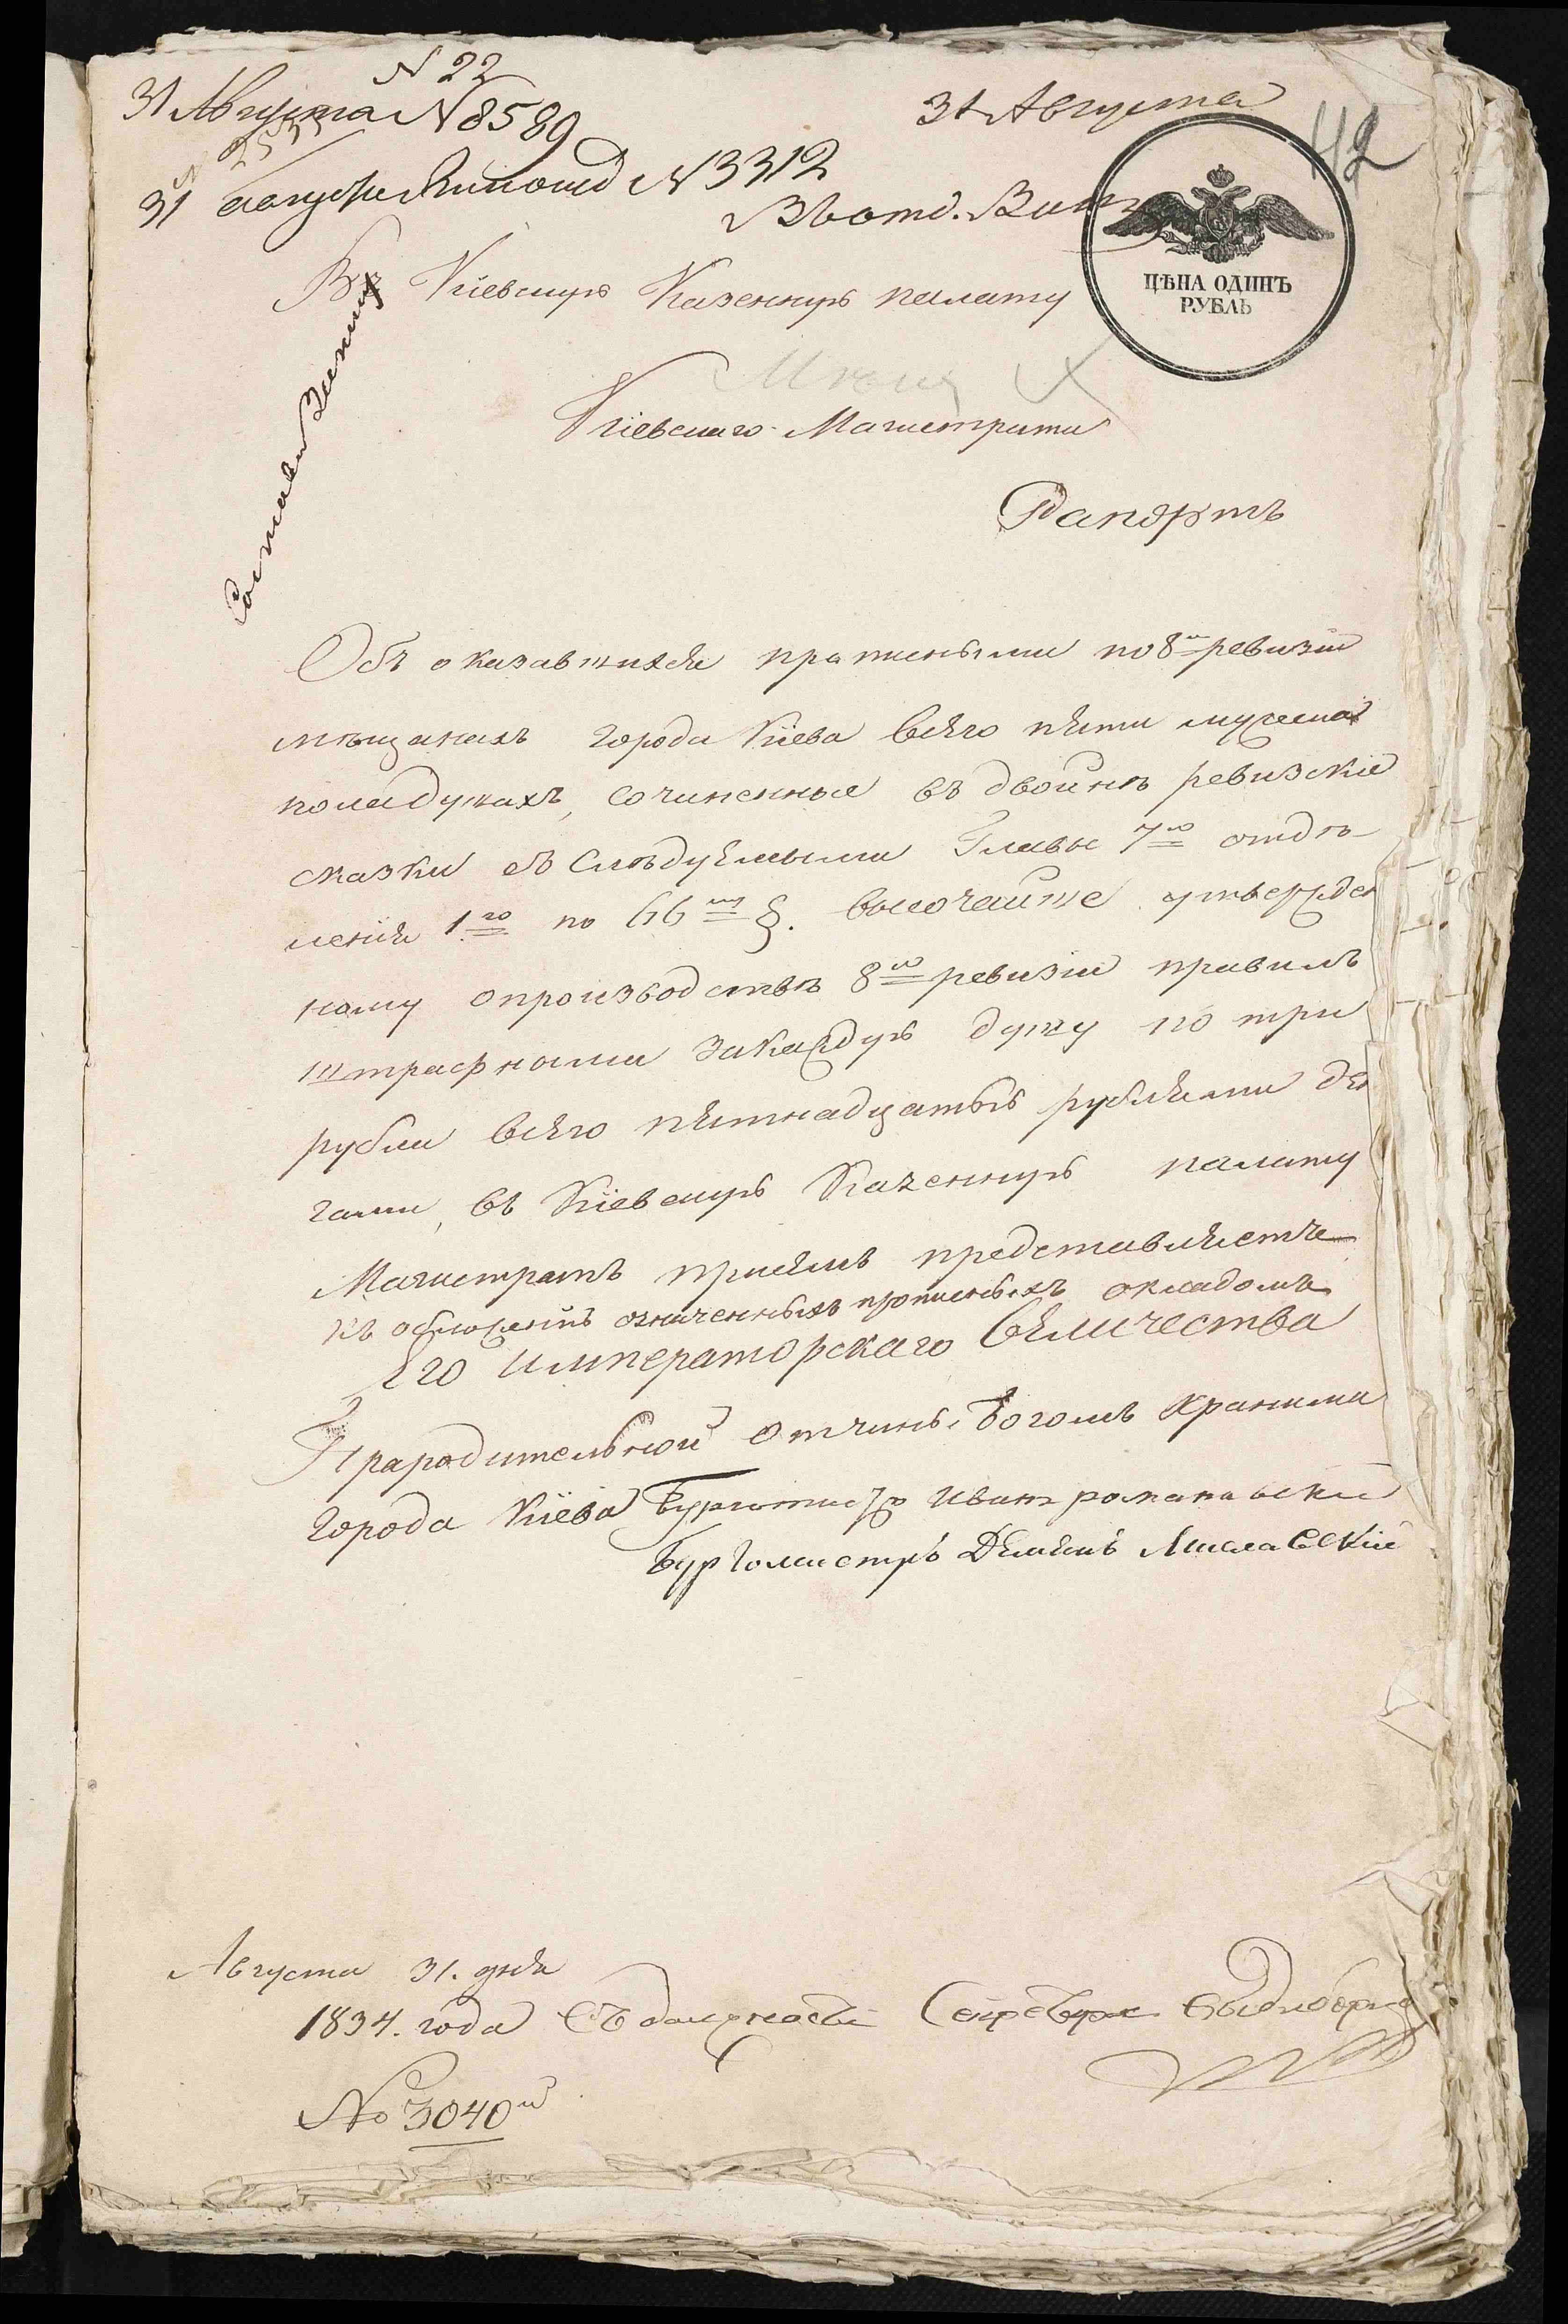 N 22
31 Августа N 8589
31 Августа
42
31 августа N 3312
Въ отд.
ЦѢНА ОДИНЪ
РУБЛЬ
Въ Кіевскую Казенную палату
Кіевскаго Магистрата
Рапортъ
Объ оказавшихся прописными по 8й ревизіи
мѣщанахъ города Кіева всего пяти мужеска
пола душахъ, сочиненные въ двойнѣ ревизскіе
сказки съ слѣдуемыми Главы 7ю отдѣ-
ленія 1го по 66му §. высочайше утвержден
ному о производствѣ 8ю ревизіи правилъ
штрафными за каждую душу по три
рубли всего пятнадцатью рублями ден
гами, въ Кіевскую Казенную палату
Магистратъ при семъ представляетъ
къ обложенію означенныхъ прописныхъ окладомъ
Его императорскаго Величества
Прародительной отчины Богомъ хранима
города Кіева Бургомистръ Иванъ
Бургомистръ Демьянъ
Августа 31. дня
1834. года Въ должности Секретаря
No 3040й